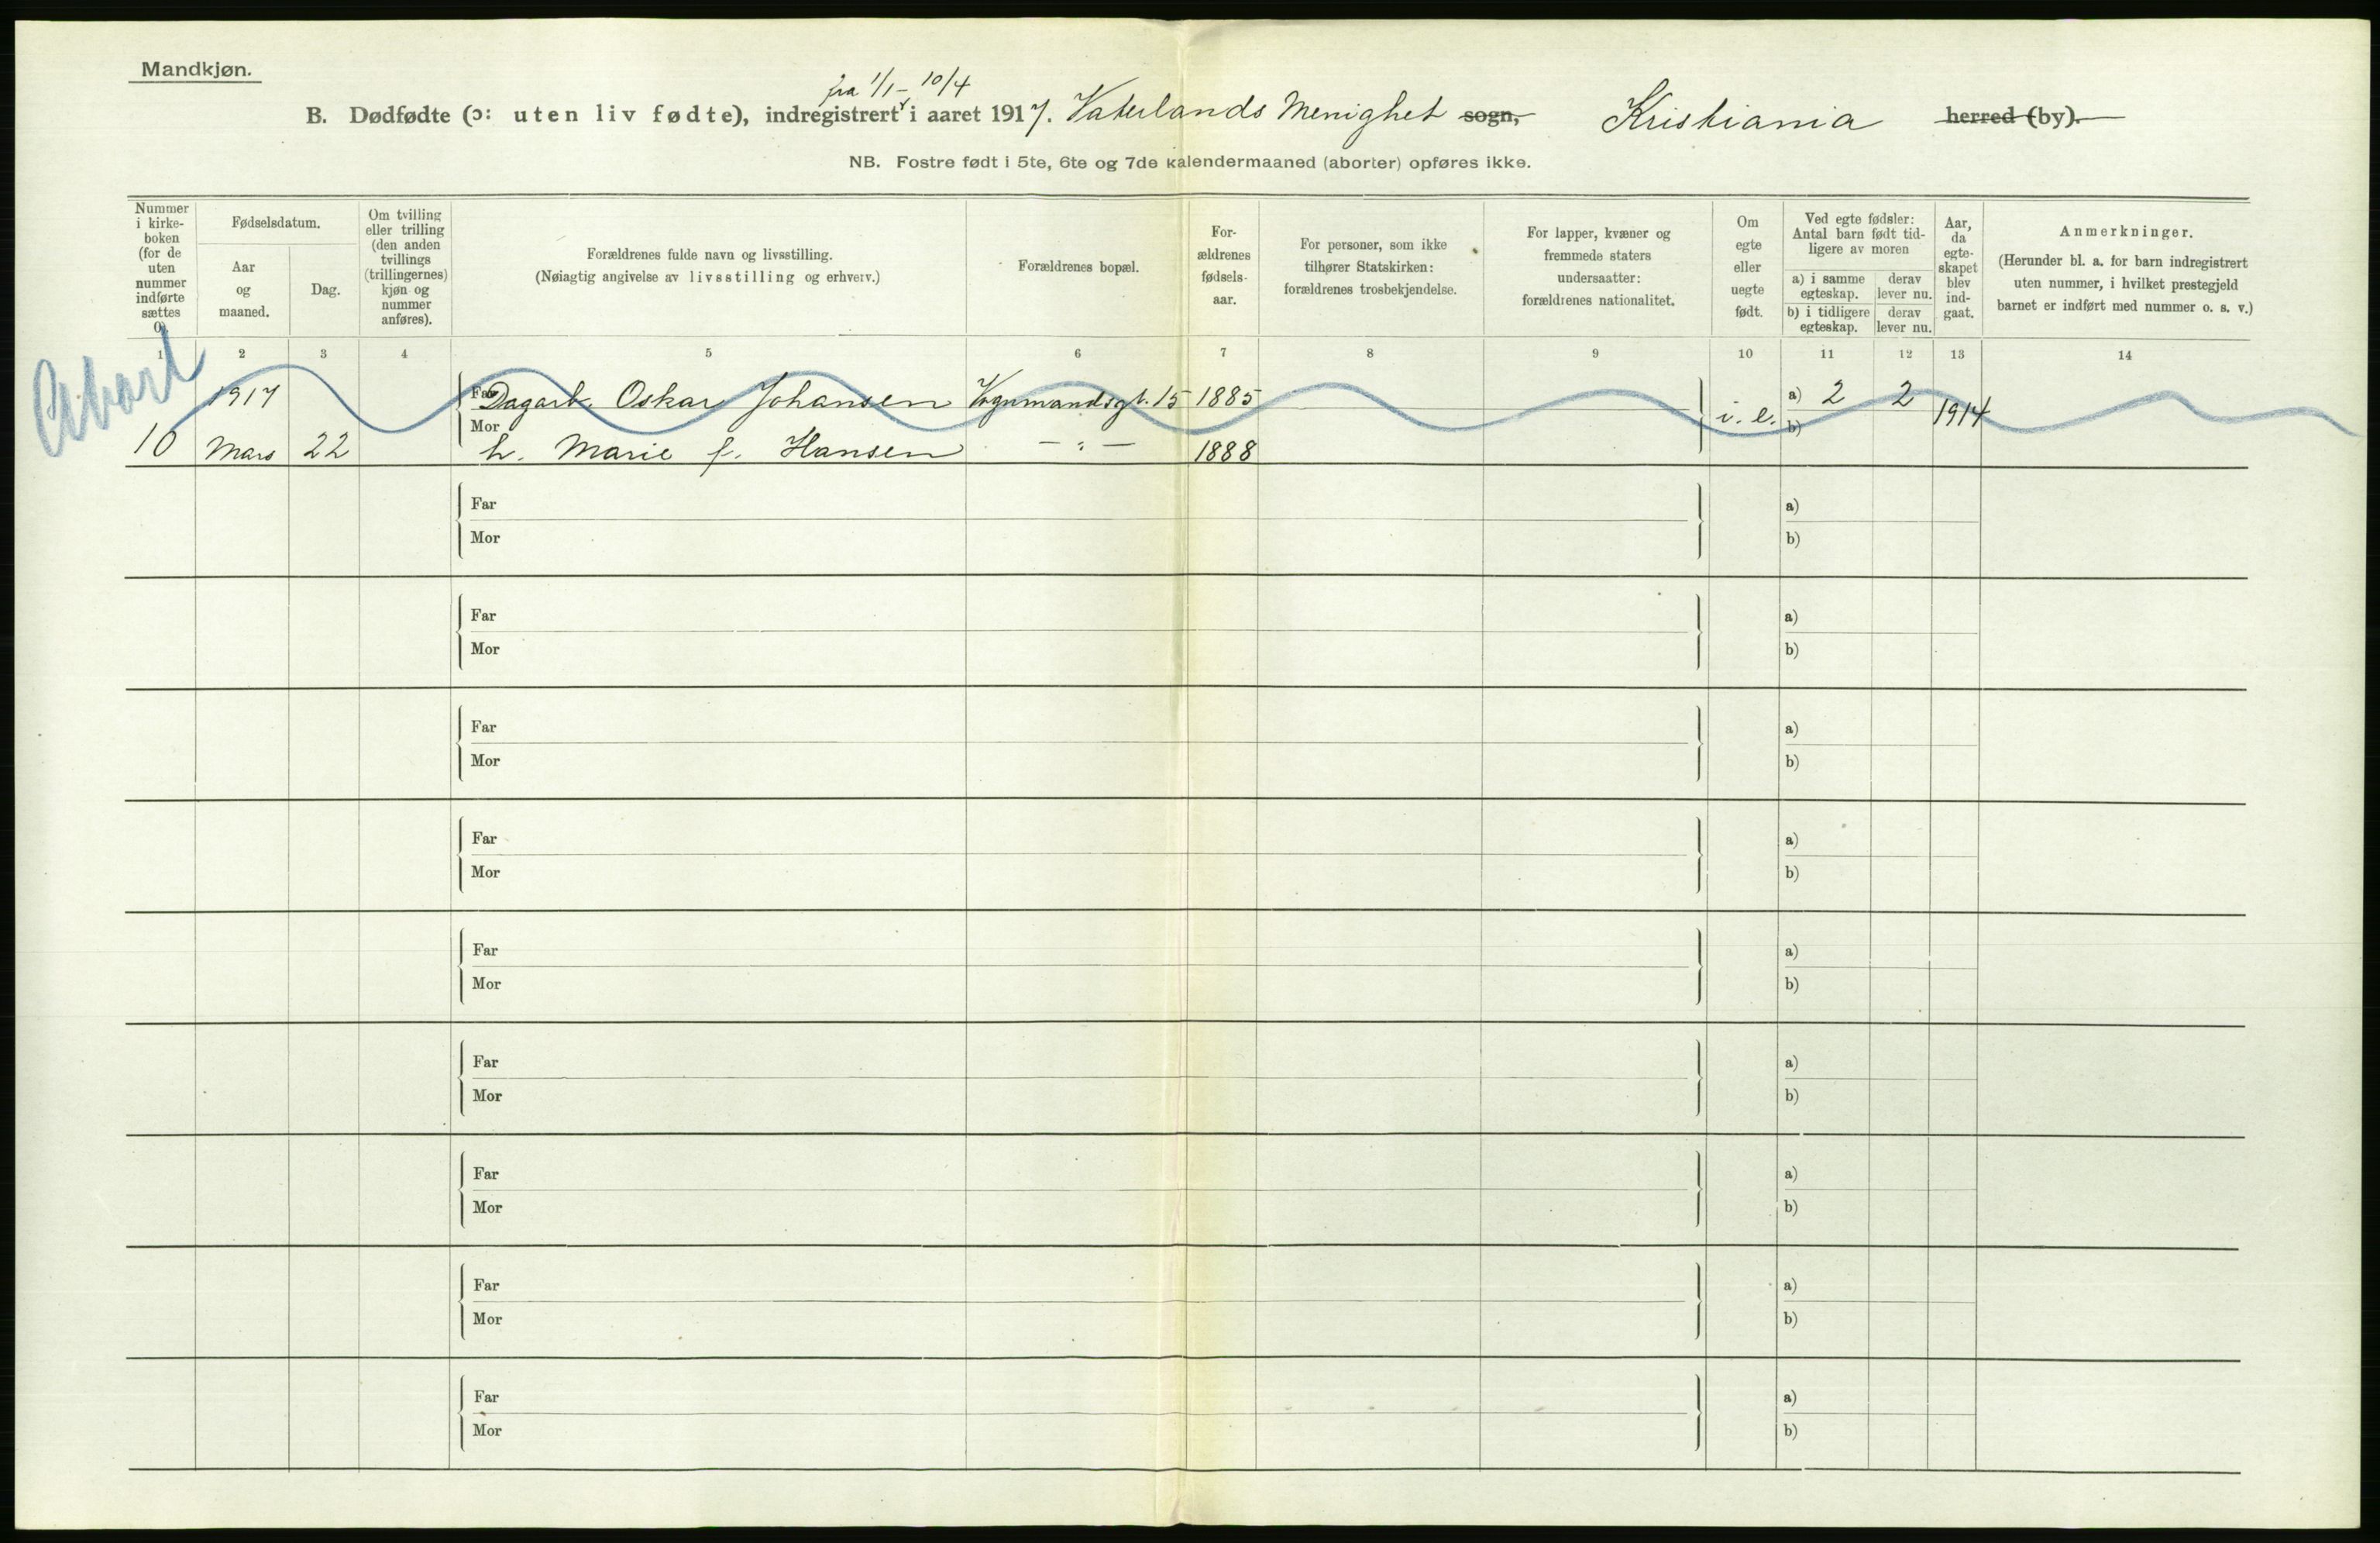 Mandkjøn.
fra 1/1 - 10/4
B. Dødfødte (ɔ: uten liv fødte), indregistrert i aaret 1917. Vaterlands Menighet sogn, Kristiania herred (by).
NB. Fostre født i 5te, 6te og 7de kalendermaaned (aborter) opføres ikke.
Nummer
i kirke-
boken
(for de
uten
nummer
indførte
sættes
0).
Fødselsdatum.
Aar
og
maaned.
Dag.
Om tvilling
eller trilling
(den anden
tvillings
(trillingernes)
kjøn og
nummer
anføres).
Forældrenes fulde navn og livsstilling.
(Nøiagtig angivelse av livsstilling og erhverv.)
Forældrenes bopæl.
For-
ældrenes
fødsels-
aar.
For personer, som ikke
tilhører Statskirken:
forældrenes trosbekjendelse.
For lapper, kvæner og
fremmede staters
undersaatter:
forældrenes nationalitet.
Om
egte
eller
uegte
født.
Ved egte fødsler:
Antal barn født tid-
ligere av moren
a) i samme
egteskap.
derav
lever nu.
b) i tidligere
egteskap.
derav
lever nu.
Aar,
da
egte-
skapet
blev
ind-
gaat.
Anmerkninger.
(Herunder bl. a. for barn indregistrert
uten nummer, i hvilket prestegjeld
barnet er indført med nummer o. s. v.)
1 2 3 4 5 6 7 8 9 10 11 12 13 14
Abort
1917 Far Dagarb. Oskar Johansen Vognmandsgt. 15 1885 i. e. a) 2 2 1914
Mor b)
10 Mars 22 h. Marie f. Hansen - " - 1888
Far a)
Mor b)
Far a)
Mor b)
Far a)
Mor b)
Far a)
Mor b)
Far a)
Mor b)
Far a)
Mor b)
Far a)
Mor b)
Far a)
Mor b)
Far a)
Mor b)